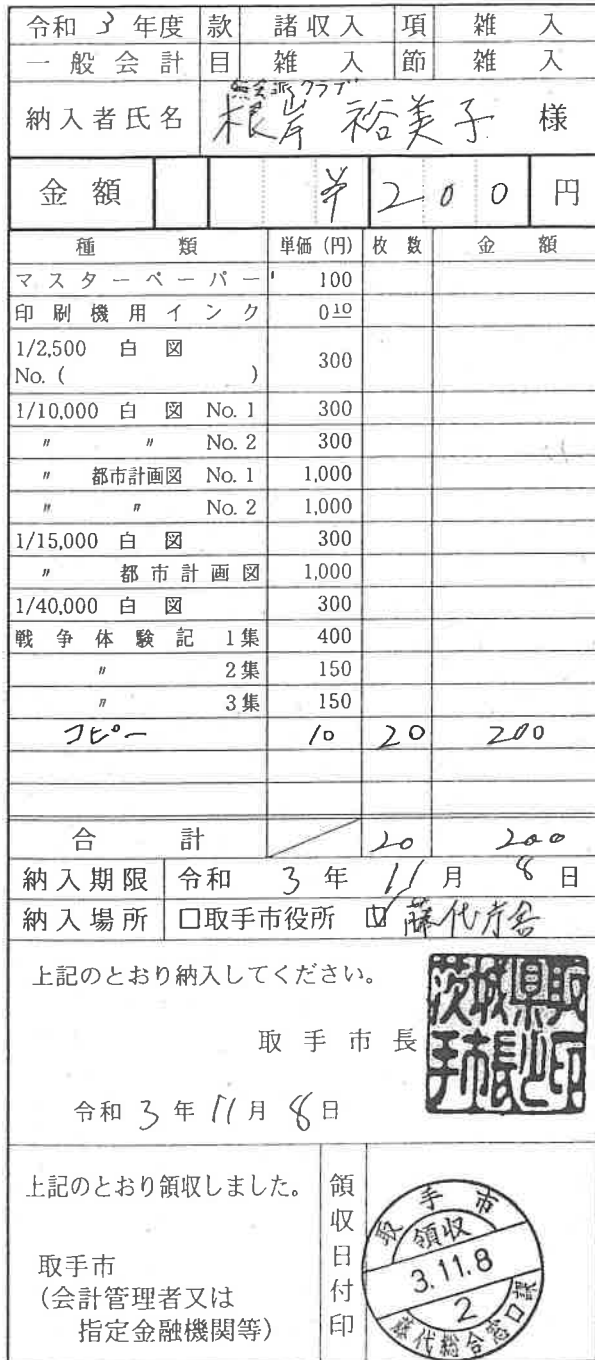 令和 3 年度 款 諸収入 項 雑入
一般会計 目 雑入 節 雑入
無会派クラブ
納入者氏名 根岸 裕美子 様
金額 ¥200円
種類 単価(円) 枚数 金額
マスターペーパー 100
印刷機用インク 0.10
1/2,500 白図
No. ( ) 300
1/10,000 白図 No. 1 300
〃 〃 No. 2 300
〃 都市計画図 No. 1 1,000
〃 〃 No. 2 1,000
1/15,000 白図 300
〃 都市計画図 1,000
1/40,000 白図 300
戦争体験記 1集 400
〃 2集 150
〃 3集 150
コピー 10 20 200
合計 20 200
納入期限 令和 3 年 11 月 8 日
納入場所 □取手市役所 ☑藤代庁舎
上記のとおり納入してください。
取手市長
茨城県取手市長之印
令和 3 年 11 月 8 日
上記のとおり領収しました。
取手市
(会計管理者又は
指定金融機関等)
領収日付印
取手市
領収
3.11.8
2
藤代総合窓口課